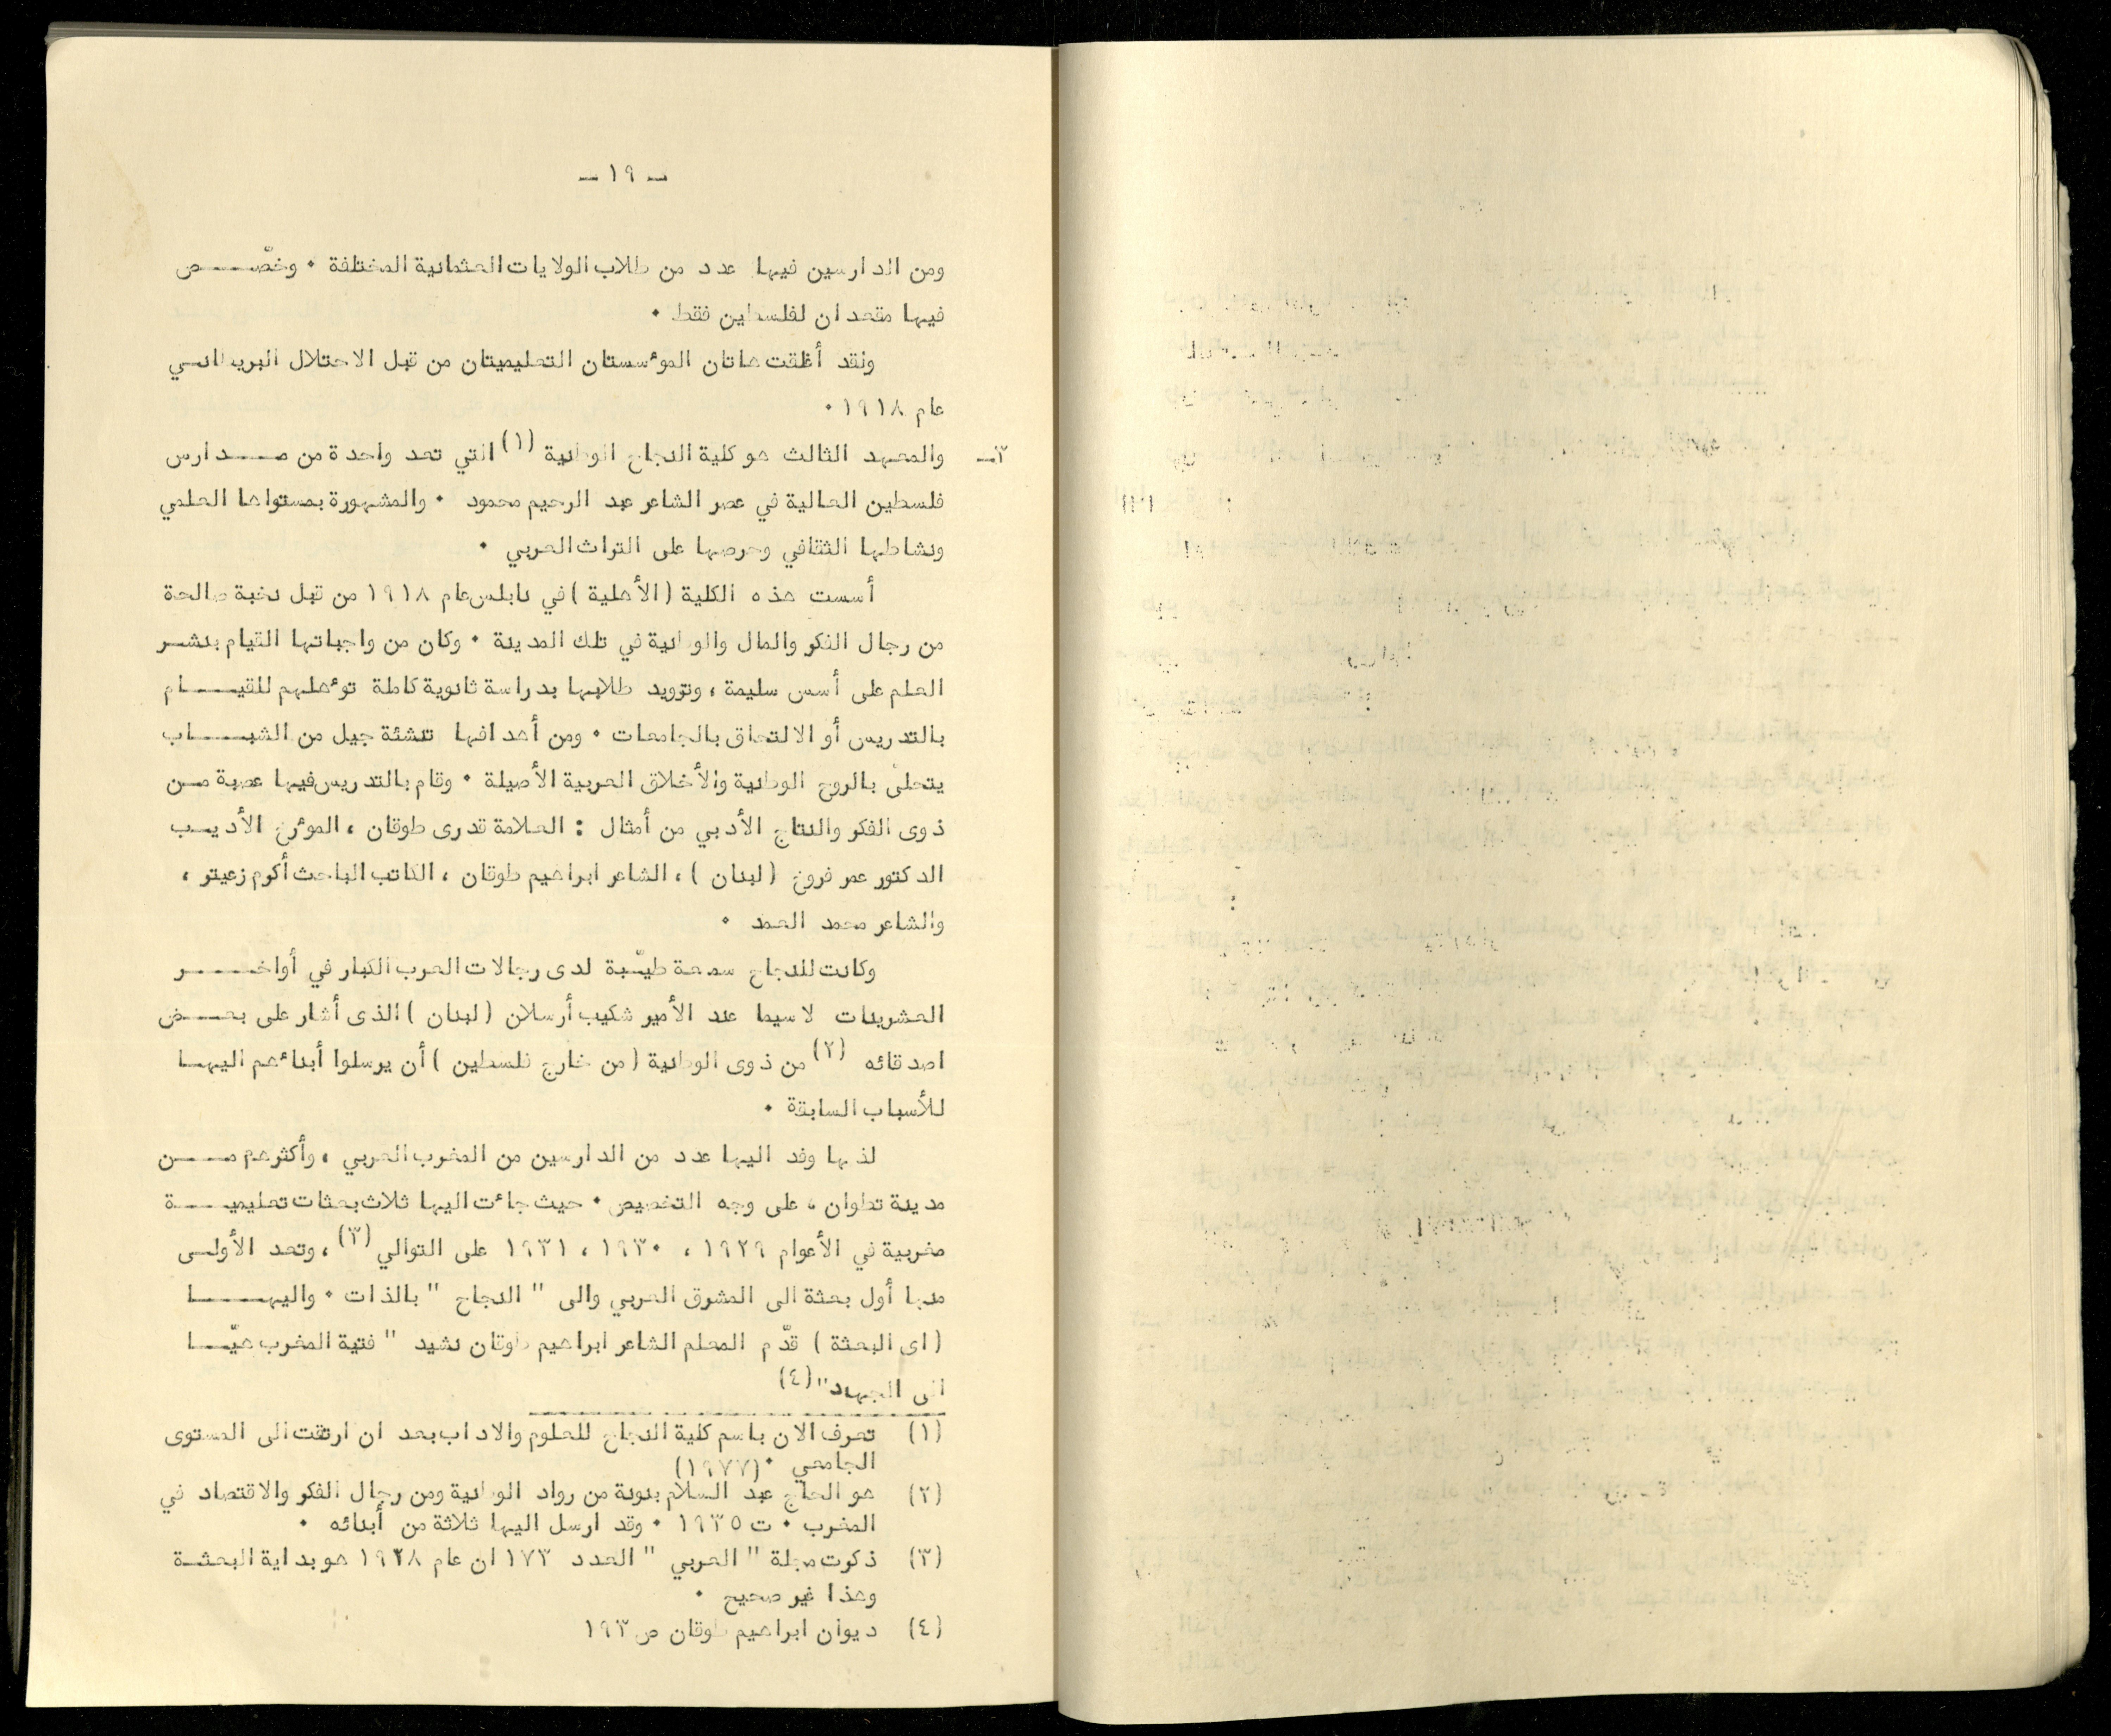 - ١٩ -
ومن الدارسين فيها عدد من طلاب الولايات العثمانية المختلفة ٠ وخصّص
فيها مقعدان لفلسطين فقط ٠
ولقد أغلقت هاتان الموٴسستان التعليميتان من قبل الاحتلال البريطاني
عام ١٩١٨ ٠
٣- والمعهد الثالث هو كلية النجاح الوطنية (١) التي تعد واحدة من مدارس
فلسطين العالية في عصر الشاعر عبد الرحيم محمود ٠ والمشهورة بمستواها العلمي
ونشاطها الثقافي وحرصها على التراث العربي ٠
أسست هذه الكلية (الأهلية) في نابلس عام ١٩١٨ من قبل نخبة صالحة
من رجال الفكر والمال والوطنية في تلك المدينة ٠ وكان من واجباتها القيام بنشر
العلم على أسس سليمة ، وتزويد طلابها بدراسة ثانوية كاملة توٴهلهم للقيام
بالتدريس أو الالتحاق بالجامعات ٠ ومن أهدافها تنشئة جيل من الشباب
يتحلىّ بالروح الوطنية والأخلاق العربية الأصيلة ٠ وقام بالتدريس فيها عصبة من
ذوى الفكر والنتاج الأدبي من أمثال : العلامة قدرى طوقان ، الموٴرخ الأديب
الدكتور عمر فروخ (لبنان) ، الشاعر ابراهيم طوقان ، الكاتب الباحث أكرم زعيتر ،
والشاعر محمد العمد ٠
وكانت للنجاح سمعة طيّبة لدى رجالات العرب الكبار في أواخر
العشرينات لاسيما عند الأمير شكيب أرسلان (لبنان) الذى أشار على بعض
اصدقائه (٢) من ذوى الوطنية (من خارج فلسطين) أن يرسلوا أبناءهم اليها
للأسباب السابقة ٠
لذىا وفد اليها عدد من الدارسين من المغرب العربي ، وأكثرهم من
مدينة تطوان ، على وجه التخصيص ٠ حيث جاءت اليها ثلاث بعثات تعليمية
مغربية في الأعوام ١٩٢٩ ، ١٩٣٠ ، ١٩٣١ على التوالي (٣) ، وتعد الأولى
منها أول بعثة الى المشرق العربي والى " النجاح " بالذات ٠ واليها
(اى البعثة) قدّم المعلم الشاعر ابراهيم طوقان نشيد " فتية المغرب هيّا
الى الجهاد" (٤)
(١) تعرف الان باسم كلية النجاح للعلوم والاداب بعد ان ارتقت الى المستوى
الجامعي ٠ (١٩٧٧)
(٢) هو الحاج عبد السلام بنونة من رواد الوطنية ومن رجال الفكر والاقتصاد في
المغرب ٠ ت ١٩٣٥ ٠ وقد ارسل اليها ثلاثة من أبنائه ٠
(٣) ذكرت مجلة " العربي " العدد ١٧٣ ان عام ١٩٢٨ هو بداية البعثة
وهذا غير صحيح ٠
(٤) ديوان ابراهيم طوقان ص ١٩٣